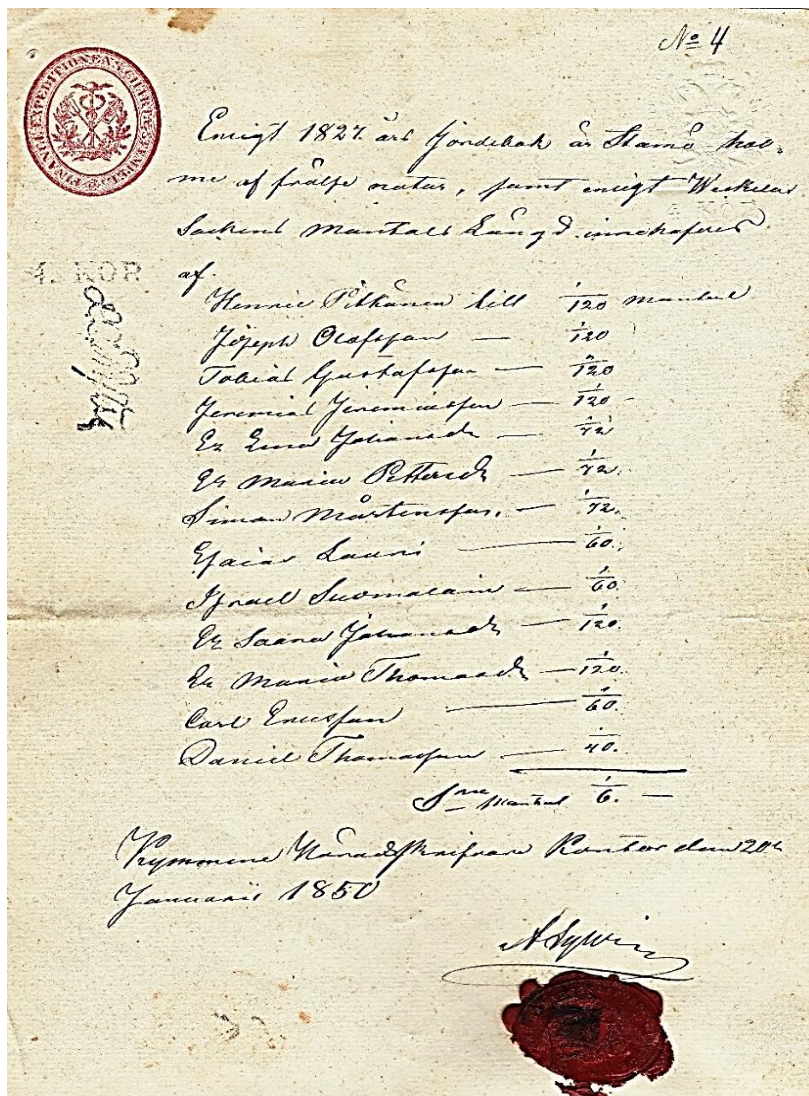 No 4
FINANCE EXPEDITIONENS CHARTÆ STEMPEL
Enligt 1827 års Jordebok är Stamö hol-
me af frälse natur, samt enligt Weckelax
Sockens Mantals Längd innehafves
4. KOP
af.
Henric Pitkänen till 1/120 mantal
Joseph Olofsson — 1/120
Tobias Gustafsson — 1/120
Jeremias Jeremiasson — 1/120
Ea Johansdr — 1/72
Maria Pettersdr — 1/72.
Simon Mårtensson. — 1/72.
Esaias Lauri — 1/60.
Israel Suomalain — 1/60.
Saara Johansdr — 1/120.
Maria Thomasdr — 1/120.
Carl Ericsson — 1/60.
Daniel Thomasson — 1/40.
Sma Mantal 1/6. —
Kymmene Häradsskrifvare Kontor den 20de
Januarii 1850